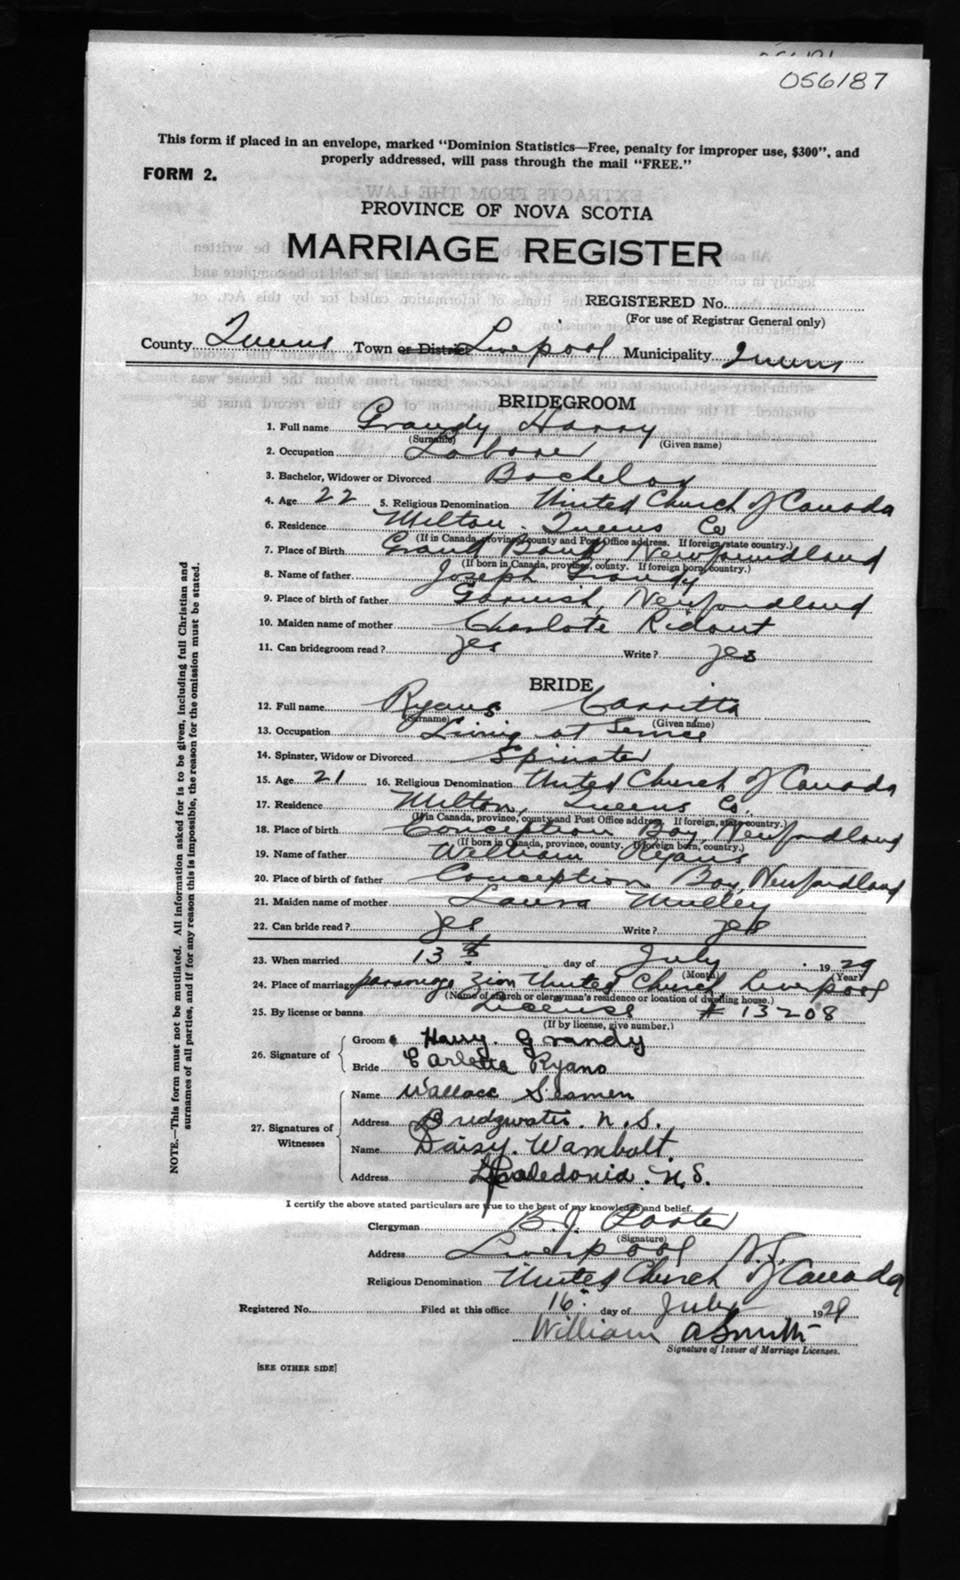 056187
This form if placed in an envelope, marked "Dominion Statistics—Free, penalty for improper use, $300", and
properly addressed, will pass through the mail "FREE."
FORM 2.
PROVINCE OF NOVA SCOTIA
MARRIAGE REGISTER
REGISTERED No.
(For use of Registrar General only)
County Queens Town or District Liverpool Municipality Queens
BRIDEGROOM
1. Full name Grandy Harry
(Surname) (Given name)
2. Occupation Laborer
3. Bachelor, Widower or Divorced Bachelor
4. Age 22 5. Religious Denomination United Church of Canada
6. Residence Milton. Queens Co
(If in Canada, province, county and Post Office address. If foreign, state country.)
7. Place of Birth Grand Bank, Newfoundland
(If born in Canada, province, county. If foreign born, country.)
8. Name of father Joseph Grandy
9. Place of birth of father Garnish, Newfoundland
10. Maiden name of mother Charlote Ridout
11. Can bridegroom read? yes Write? yes
BRIDE
12. Full name Ryans Carritta
(Surname) (Given name)
13. Occupation Living at Service
14. Spinster, Widow or Divorced Spinster
15. Age 21 16. Religious Denomination United Church of Canada
17. Residence Milton, Queens Co.
(If in Canada, province, county and Post Office address. If foreign, state country.)
18. Place of birth Conception Bay, Newfoundland
(If born in Canada, province, county. If foreign born, country.)
19. Name of father William Ryans
20. Place of birth of father Conception Bay, Newfoundland
21. Maiden name of mother Laura
22. Can bride read? yes Write? yes
23. When married 13 day of July 1929
(Month) (Year)
24. Place of marriage parsonage Zion United Church Liverpool
(Name of church or clergyman's residence or location of dwelling house.)
25. By license or banns License # 13208
(If by license, give number.)
26. Signature of Groom Harry. Grandy
Bride Carletta Ryans
27. Signatures of Witnesses Name Wallace Slamen
Address Bridgwater. N.S.
Name Daisy. Wambolt.
Address Caledonia. N.S.
I certify the above stated particulars are true to the best of my knowledge and belief.
Clergyman B. J. Porter
(Signature)
Address Liverpool N.S.
Religious Denomination United Church of Canada
Registered No. Filed at this office 16. day of July 1929
William A Smith
Signature of Issuer of Marriage Licenses.
[SEE OTHER SIDE]
NOTE.—This form must not be mutilated. All information asked for is to be given, including full Christian and
surnames of all parties, and if for any reason this is impossible, the reason for the omission must be stated.